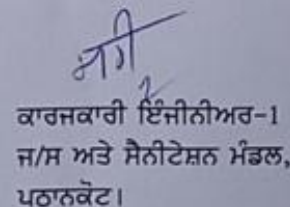 ਕਾਰਜਕਾਰੀ ਇੰਜੀਨੀਅਰ-1
ਜ/ਸ ਅਤੇ ਸੈਨੀਟੇਸ਼ਨ ਮੰਡਲ,
ਪਠਾਨਕੋਟ।